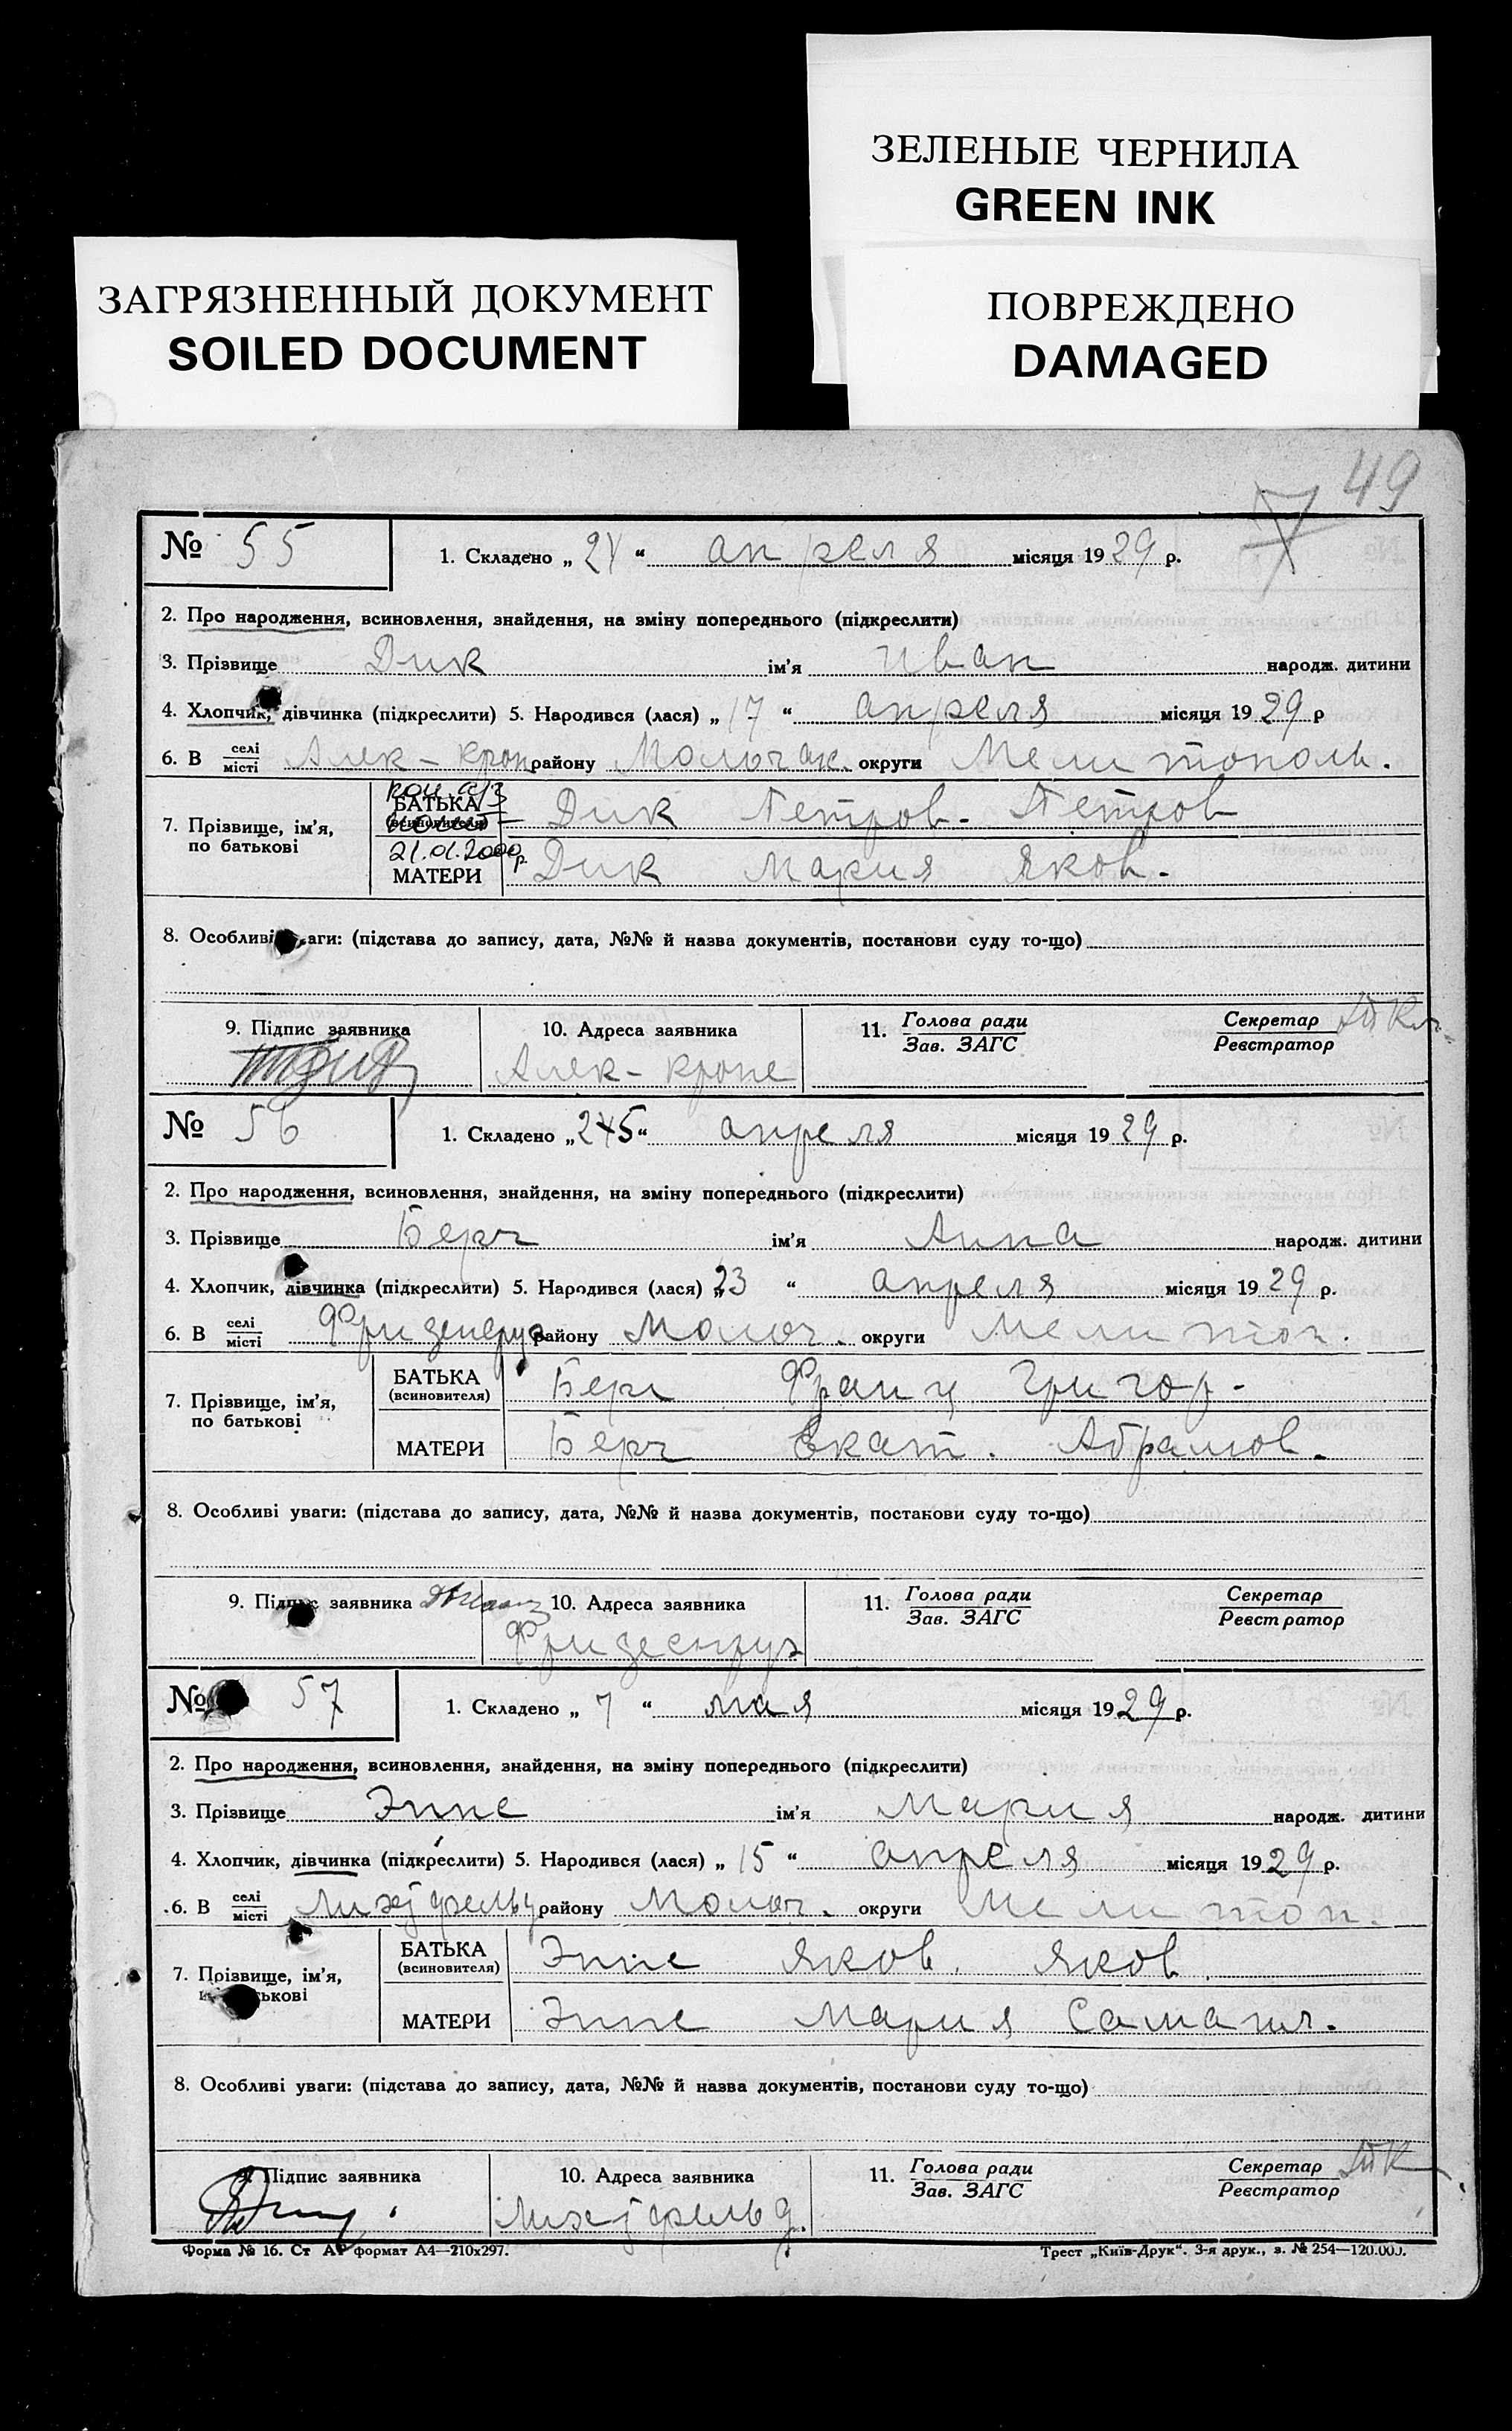 ЗЕЛЕНЫЕ ЧЕРНИЛА
GREEN INK
ЗАГРЯЗНЕННЫЙ ДОКУМЕНТ
SOILED DOCUMENT
ПОВРЕЖДЕНО
DAMAGED
49
№ 55 1. Складено „ 24 “ апреля місяця 1929 р.
2. Про народження, всиновлення, знайдення, на зміну попереднього (підкреслити)
3. Прізвище Дик ім'я Иван народж. дитини
4. Хлопчик, дівчинка (підкреслити) 5. Народився (лася) „ 17 “ апреля місяця 1929 р
6. В селі/місті Алек-кроп району Молочан. округи Мелитополь.
7. Прізвище, ім'я, по батькові
БАТЬКА (всиновителя) Дик Петров. Петров
21.01.2000 р.
МАТЕРИ Дик Мария Яков.
8. Особливі уваги: (підстава до запису, дата, №№ й назва документів, постанови суду то-що)
9. Підпис заявника 10. Адреса заявника 11. Голова ради/Зав. ЗАГС Секретар/Реєстратор
Алек-кропе
№ 56 1. Складено „ 245 “ апреля місяця 1929 р.
2. Про народження, всиновлення, знайдення, на зміну попереднього (підкреслити)
3. Прізвище Берг ім'я Анна народж. дитини
4. Хлопчик, дівчинка (підкреслити) 5. Народився (лася) „ 23 “ апреля місяця 1929 р.
6. В селі/місті району Молоч. округи Мелитоп.
7. Прізвище, ім'я, по батькові
БАТЬКА (всиновителя) Берг Франц Григор-
МАТЕРИ Берг Екат. Абрамов.
8. Особливі уваги: (підстава до запису, дата, №№ й назва документів, постанови суду то-що)
9. Підпис заявника 10. Адреса заявника 11. Голова ради/Зав. ЗАГС Секретар/Реєстратор
№ 57 1. Складено „ 7 “ мая місяця 1929 р.
2. Про народження, всиновлення, знайдення, на зміну попереднього (підкреслити)
3. Прізвище Эппе ім'я Мария народж. дитини
4. Хлопчик, дівчинка (підкреслити) 5. Народився (лася) „ 15 “ апреля місяця 1929 р.
6. В селі/місті району Молоч. округи Мелитоп.
7. Прізвище, ім'я, батькові
БАТЬКА (всиновителя) Эппе Яков. Яков.
МАТЕРИ Эппе Мария
8. Особливі уваги: (підстава до запису, дата, №№ й назва документів, постанови суду то-що)
9. Підпис заявника 10. Адреса заявника 11. Голова ради/Зав. ЗАГС Секретар/Реєстратор
Форма № 16. Ст А4 формат А4—210х297. Трест „Київ-Друк“. 3-я друк., з. № 254—120.000.